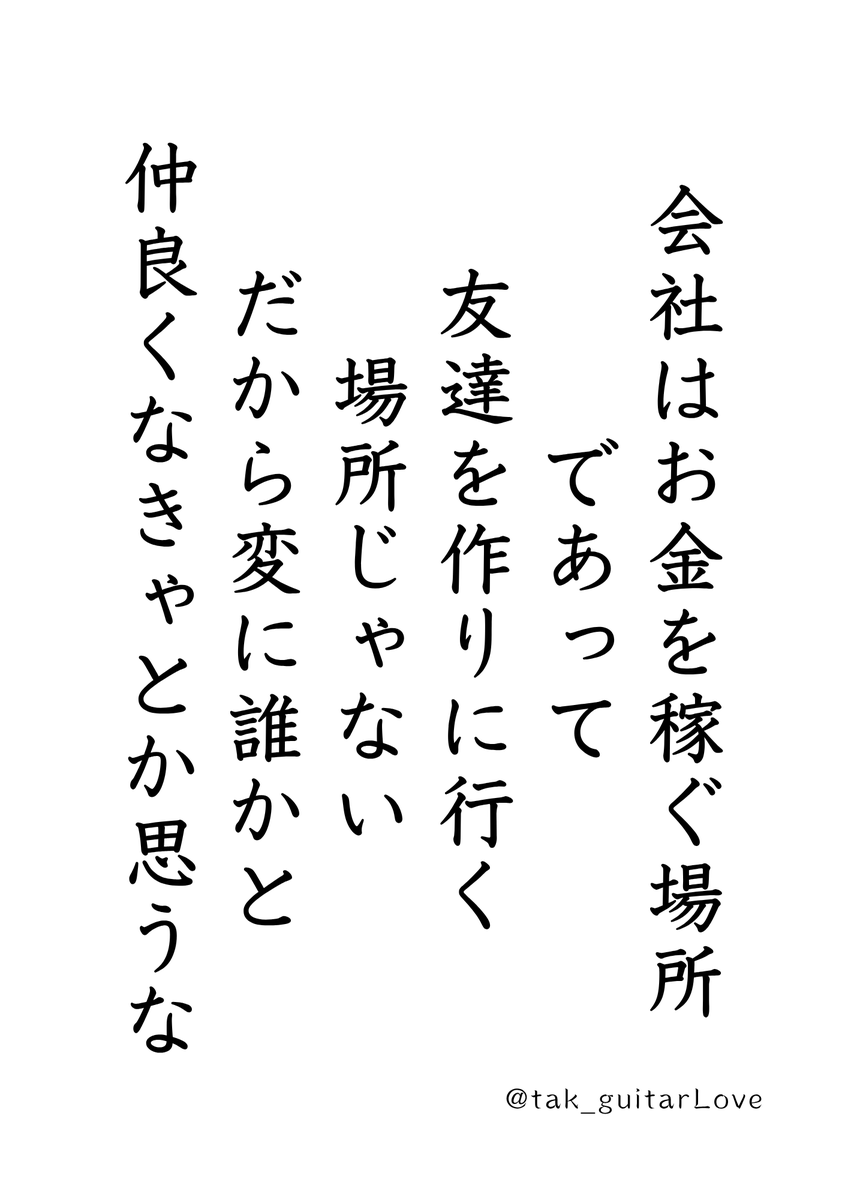 会社はお金を稼ぐ場所
であって
友達を作りに行く
場所じゃない
だから変に誰かと
仲良くなきゃとか思うな
@tak_guitarLove